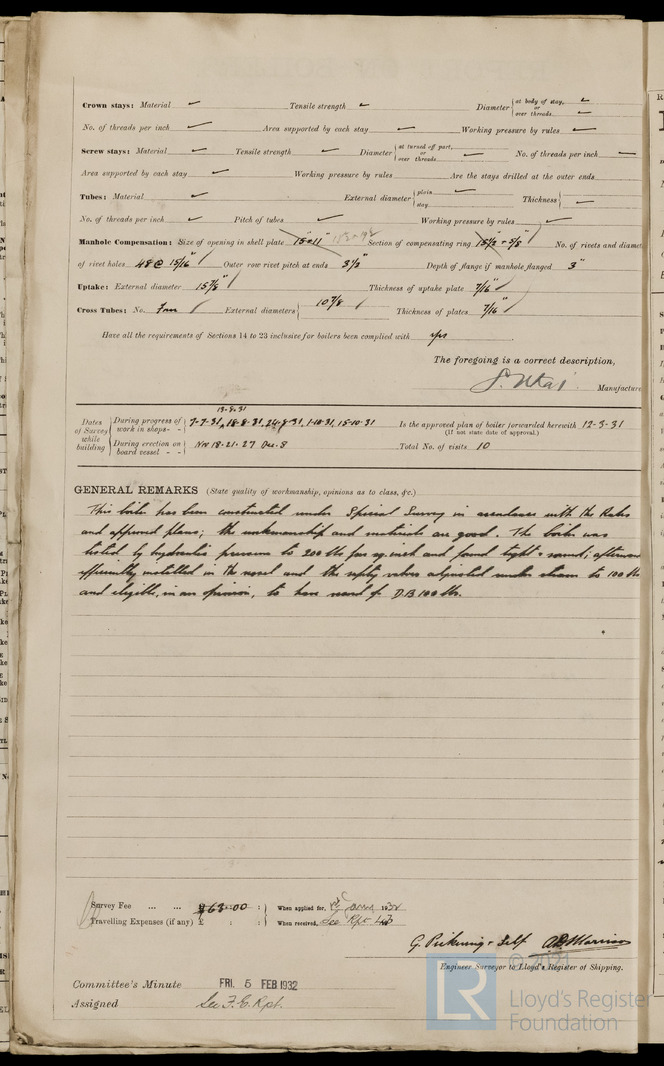 Crown stays: Material ✓ Tensile strength ✓ Diameter { at body of stay, ✓ or over threads ✓
No. of threads per inch ✓ Area supported by each stay ✓ Working pressure by rules ✓
Screw stays: Material ✓ Tensile strength ✓ Diameter { at turned off part, or over threads ✓ No. of threads per inch ✓
Area supported by each stay ✓ Working pressure by rules Are the stays drilled at the outer ends
Tubes: Material ✓ External diameter { plain ✓ stay Thickness { ✓
No. of threads per inch ✓ Pitch of tubes ✓ Working pressure by rules ✓
Manhole Compensation: Size of opening in shell plate 15×11" Section of compensating ring No. of rivets and diamet
of rivet holes 48 @ 15/16" Outer row rivet pitch at ends 3½" Depth of flange if manhole flanged 3"
Uptake: External diameter 15⅞" Thickness of uptake plate 7/16"
Cross Tubes: No. Four External diameters { 10⅞ Thickness of plates 7/16"
Have all the requirements of Sections 14 to 23 inclusive for boilers been complied with yes
The foregoing is a correct description,
Manufacture
Dates of Survey while building { During progress of work in shops - - { 7-7-31, 13-8-31 18-8-31, 24-8-31, 1-10-31, 15-10-31 Is the approved plan of boiler forwarded herewith 12-3-31
(If not state date of approval.)
During erection on board vessel - - { Nov 18-21-27 Dec. 8 Total No. of visits 10
GENERAL REMARKS (State quality of workmanship, opinions as to class, &c.)
This boiler has been constructed under Special Survey in accordance with the Rules
and approved plans; the workmanship and materials are good. The boiler was
tested by hydraulic pressure to 200 lbs per sq. inch and found tight & sound; afterwa
efficiently installed in the vessel and the safety valves adjusted under steam to 100 lbs
and eligible, in our opinion, to have record of D.B. 100 lbs.
Survey Fee ... ... 68-00 : When applied for, 1932
Travelling Expenses (if any) £ : : When received, See Rpt
G. Pickering & Self A.D. Morrison
Engineer Surveyor to Lloyd's Register of Shipping.
© 2021
Committee's Minute FRI. 5 FEB 1932
Assigned See F.E. Rpt.
LR
Lloyd's Register
Foundation